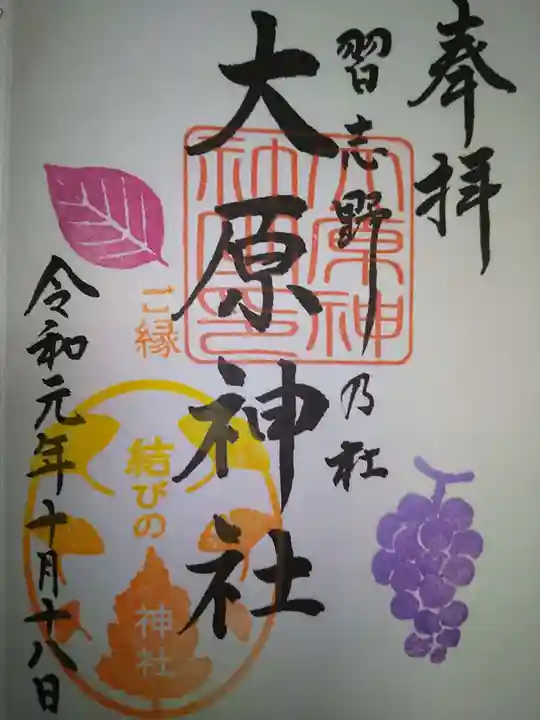 奉拝
習志野乃社
大原神社
大原神
社
ご縁
結びの
神社
令和元年十月十八日